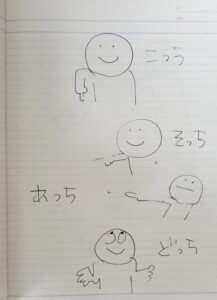 こっち
そっち
あっち
どっち